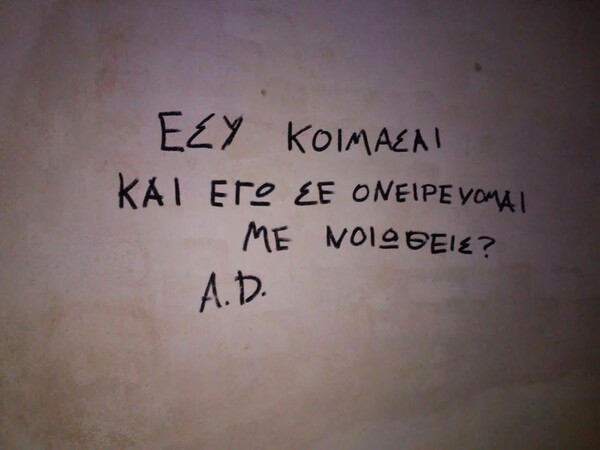 ΕΣΥ ΚΟΙΜΑΣΑΙ
ΚΑΙ ΕΓΩ ΣΕ ΟΝΕΙΡΕΥΟΜΑΙ
ΜΕ ΝΟΙΩΘΕΙΣ?
A.D.